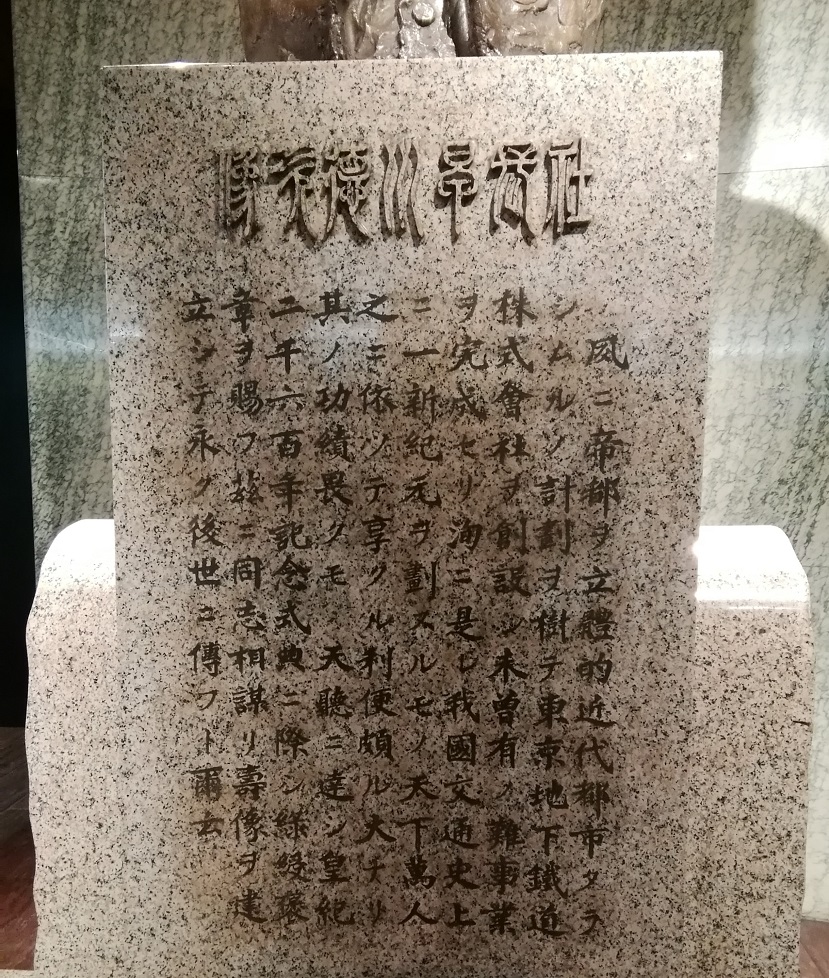 社長早川德次像
夙ニ帝都ヲ立體的近代都市タラ
シムルノ計劃ヲ樹テ東京地下鐵道
株式會社ヲ創設シ未曾有ノ難事業
ヲ完成セリ洵ニ是レ我國交通史上
ニ一新紀元ヲ劃スルモノ天下萬人
之ニ依ツテ享クル利便頗ル大ナリ
其ノ功績畏クモ　天聽ニ達シ皇紀
二千六百年記念式典ニ際シ綠綬褒
章ヲ賜フ玆ニ同志相謀リ壽像ヲ建
立シテ永ク後世ニ傳フト爾云